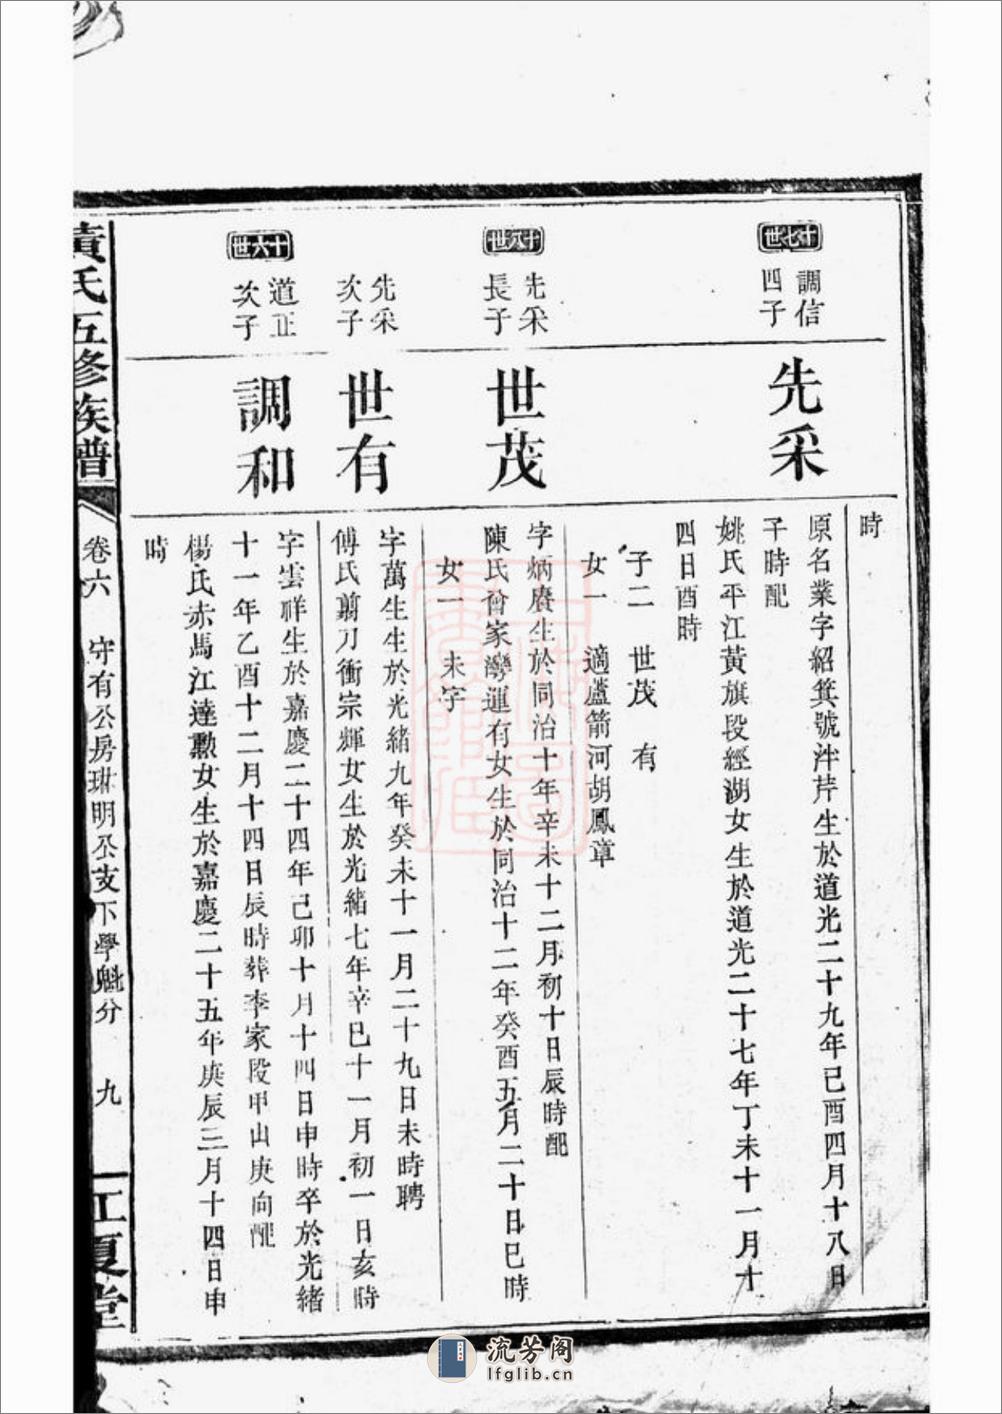 時
十七世
調信
四子
先采
原名業字紹箕號泮芹生於道光二十九年己酉四月十八日
子時配
姚氏平江黃旗段經湖女生於道光二十七年丁未十一月十
四日酉時
子二 世茂 有
女一 適蘆箭河胡鳳章
十八世
先采
長子
世茂
字炳賡生於同治十年辛未十二月初十日辰時配
陳氏曾家灣運有女生於同治十二年癸酉五月二十日巳時
女一 未字
先采
次子
世有
字萬生生於光緒九年癸未十一月二十九日未時聘
傅氏剪刀衝宗輝女生於光緒七年辛巳十一月初一日亥時
十六世
道正
次子
調和
字雲祥生於嘉慶二十四年己卯十月十四日申時卒於光緒
十一年乙酉十二月十四日辰時葬李家段甲山庚向配
楊氏赤馬江達勲女生於嘉慶二十五年庚辰三月十四日申
時
黃氏五修族譜
卷六 守有公房琳明公支下學魁分 九
江夏堂
流芳阁
lfglib.cn